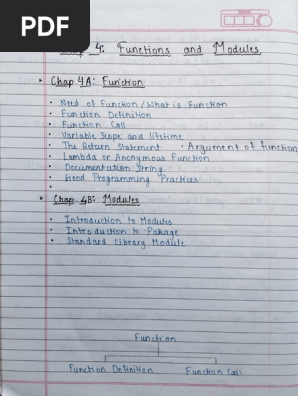 PDF
4: Functions and Modules
Chap 4A: Function
Need of Function/What is Function
Function Definition
Function Call
Variable Scope and lifetime
The Return Statement • Argument of function
Lambda or Anonymous Function
Documentation String.
Good Programming Practices
Chap. 4B: Modules
Introduction to Modules
Introduction to Pakage
Standard Library Module
Function
Function Definition Function Call